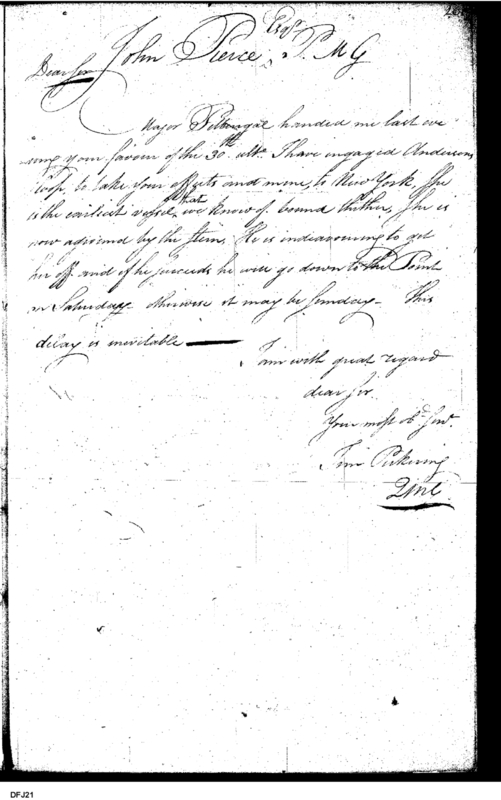 John Pierce Esqr. P. M G
Dear Sir
Major Pettengal handed me last eve
ning your favour of the 30th ulto. I have engaged Anderson
sloop, to take your effects and mine, to New York, She
is the earliest vessel that we know of bound thither, She is
now aground by the Stern. He is endeavouring to get
her off and if he succeeds he will go down to the Point
on Saturday otherwise it may be Sunday - This
delay is inevitable
I am with great regard
dear Sir
Your most ob. Serv.
Tim Pickering
QMG
DFJ21